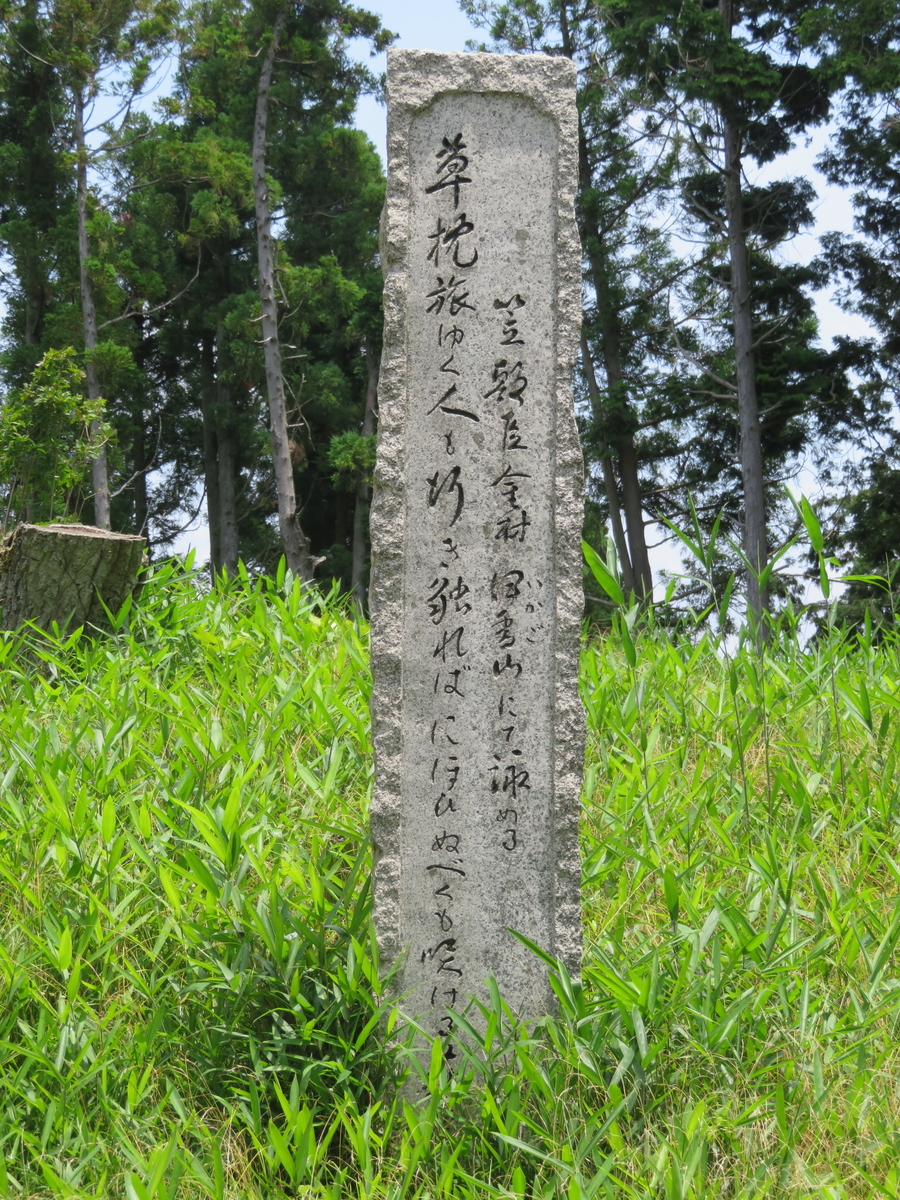 笠朝臣金村 伊香山にて詠める
いがご
草枕旅ゆく人も行き触ればにほひぬべくも咲ける